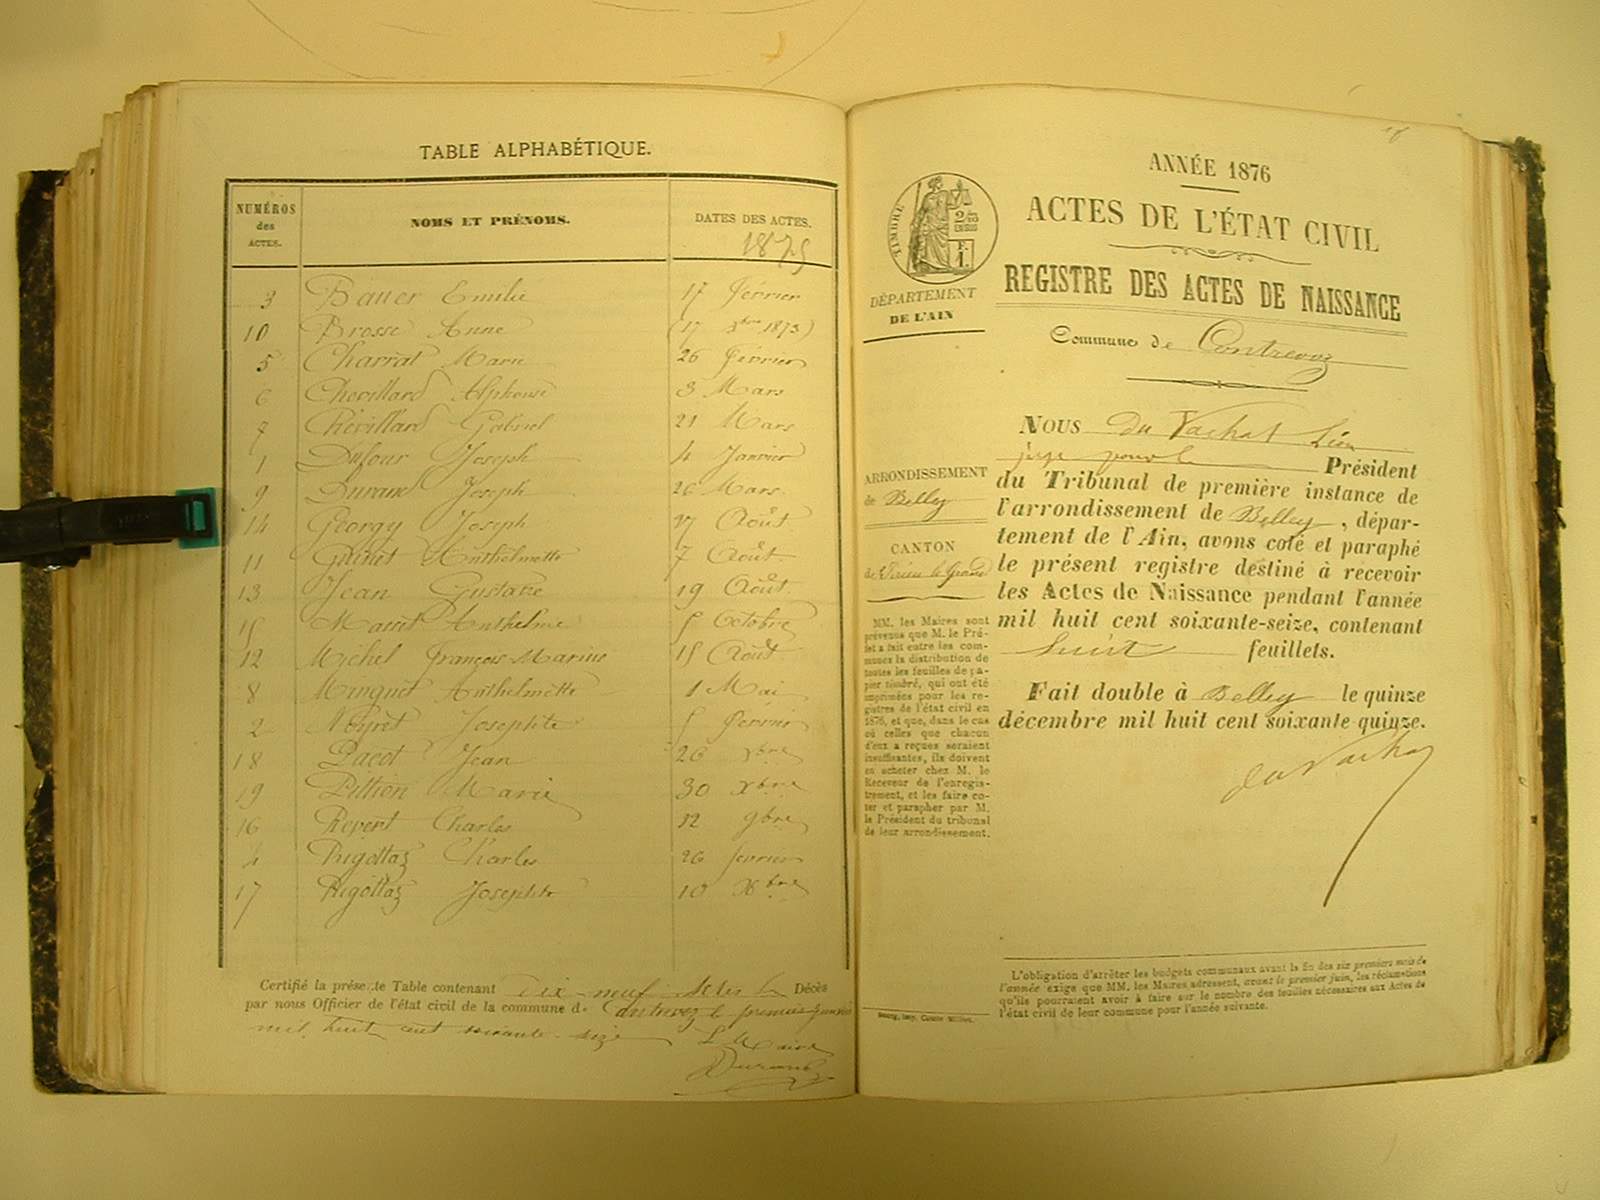 TABLE ALPHABÉTIQUE.
NUMÉROS des ACTES. NOMS ET PRÉNOMS. DATES DES ACTES.
1875
3 Bauer Emilie 17 février
10 Brosse Anne (17 Xbre 1873)
5 Charrat Marie 26 février
6 Chevillard Alphonse 3 Mars
7 Chevillard Gabriel 21 Mars
1 Dufour Joseph 4 Janvier
9 Durand Joseph 26 Mars
14 Georgy Joseph 27 Août
11 Anthelmette 7 Août
13 Jean Gustave 19 Août
15 Anthelme 5 Octobre
12 Michel François Marius 15 Août
8 Minguet Anthelmette 1 Mai
2 Noyret Josephte 5 février
18 Pacot Jean 26 Xbre
19 Pillion Marie 30 Xbre
16 Revert Charles 12 9bre
4 Rigottaz Charles 26 fevrier
17 Rigottaz Josephte 10 Xbre
Certifié la présente Table contenant dix-neuf Actes de Décès
par nous Officier de l'état civil de la commune de Contrevoz le premier janvier
mil huit cent soixante-seize Le Maire
Durand
ANNÉE 1876
ACTES DE L'ÉTAT CIVIL
REGISTRE DES ACTES DE NAISSANCE
Commune de Contrevoz
TIMBRE
2/10 EN SUS
F. 1.
DÉPARTEMENT
DE L'AIN
ARRONDISSEMENT
de Belley
CANTON
de Virieu le Grand
MM. les Maires sont
prévenus que M. le Pré-
fet a fait entre les com-
munes la distribution de
toutes les feuilles de pa-
pier timbré, qui ont été
imprimées pour les re-
gistres de l'état civil en
1876, et que, dans le cas
où celles que chacun
d'eux a reçues seraient
insuffisantes, ils doivent
en acheter chez M. le
Receveur de l'enregis-
trement, et les faire co-
ter et parapher par M.
le Président du tribunal
de leur arrondissement.
NOUS du Vachat Léon
juge pour le Président
du Tribunal de première instance de
l'arrondissement de Belley, dépar-
tement de l'Ain, avons coté et paraphé
le présent registre destiné à recevoir
les Actes de Naissance pendant l'année
mil huit cent soixante-seize, contenant
huit feuillets.
Fait double à Belley le quinze
décembre mil huit cent soixante quinze.
du Vachat
L'obligation d'arrêter les budgets communaux avant la fin des six premiers mois de
l'année exige que MM. les Maires adressent, avant le premier juin, les réclamations
qu'ils pourraient avoir à faire sur le nombre des feuilles nécessaires aux Actes de
l'état civil de leur commune pour l'année suivante.